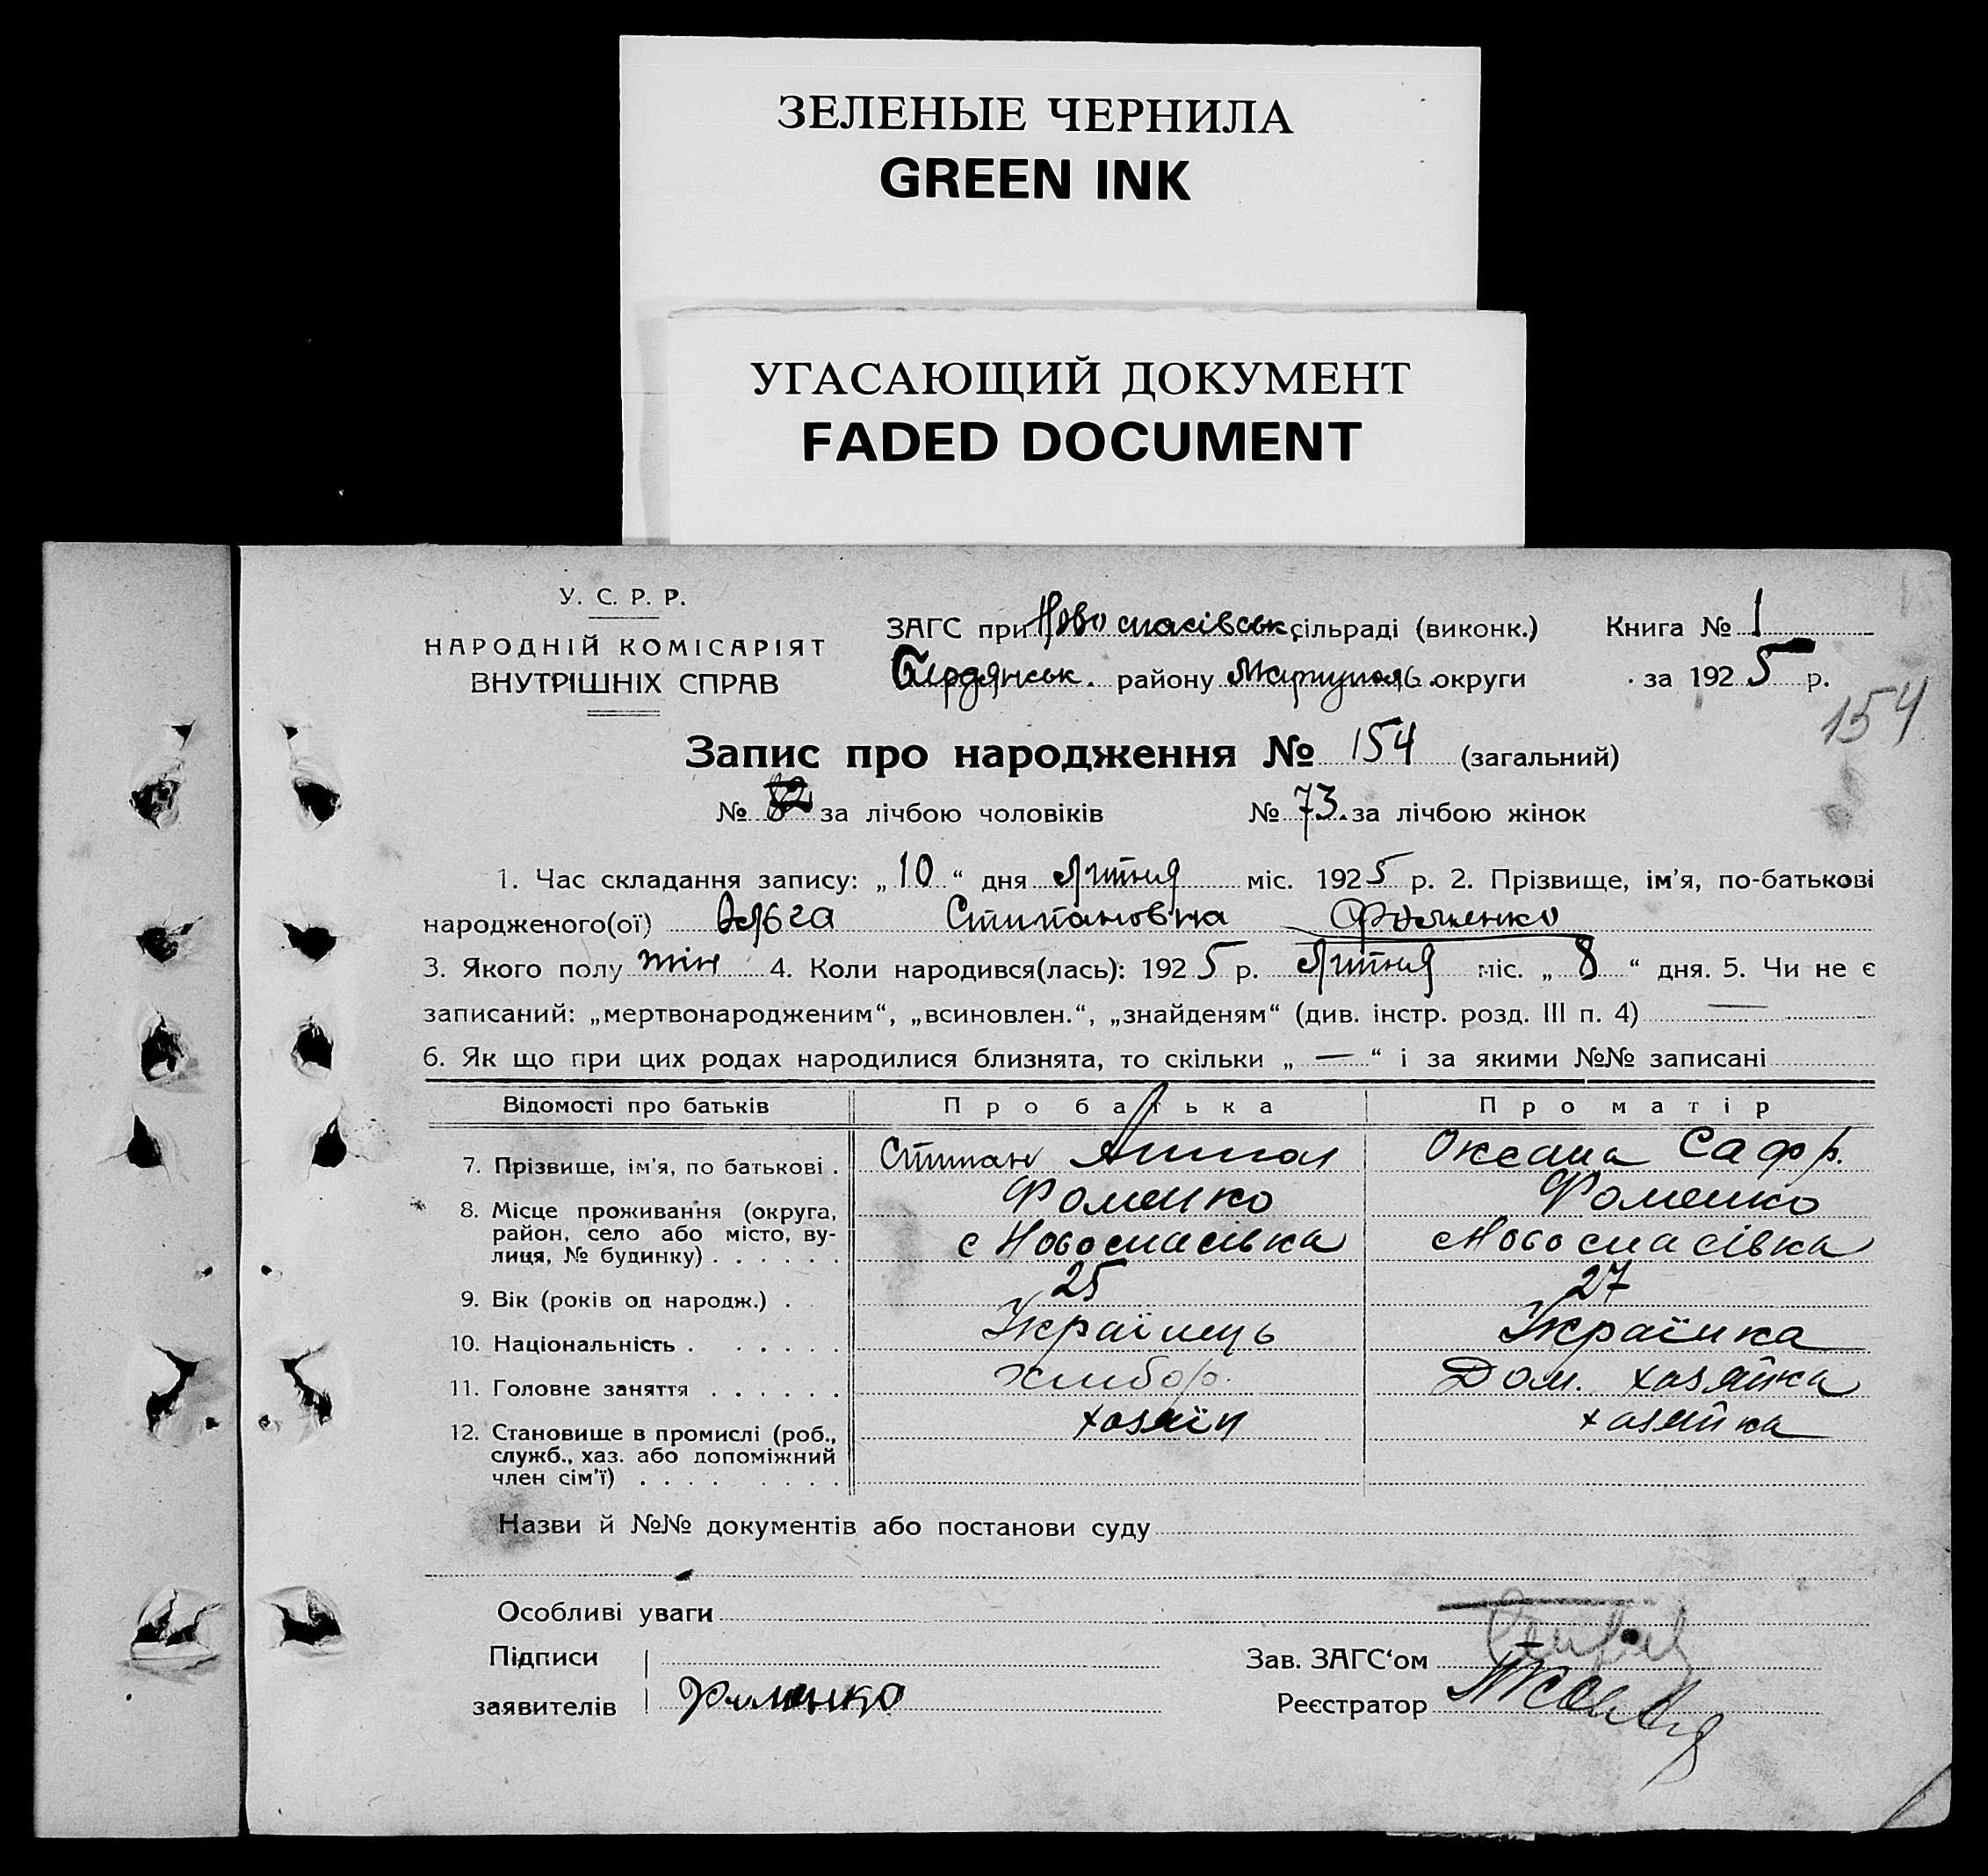 ЗЕЛЕНЫЕ ЧЕРНИЛА
GREEN INK
УГАСАЮЩИЙ ДОКУМЕНТ
FADED DOCUMENT
У. С. Р. Р.
НАРОДНІЙ КОМІСАРІЯТ
ВНУТРІШНІХ СПРАВ
ЗАГС при Новоспасівськ. сільраді (виконк.)
Книга № 1
Бердянськ. району Маріуполь округи
за 1925 р.
154
Запис про народження № 154 (загальний)
№ 82 за лічбою чоловіків № 73. за лічбою жінок
1. Час складання запису: „10“ дня Липня міс. 1925 р. 2. Прізвище, ім'я, по-батькові
народженого(ої) Ольга Степановна Фоменко
3. Якого полу жін 4. Коли народився(лась): 1925 р. Липня міс. „8“ дня. 5. Чи не є
записаний: „мертвонародженим“, „всиновлен.“, „знайденям“ (див. інстр. розд. III п. 4) —
6. Як що при цих родах народилися близнята, то скільки „—“ і за якими №№ записані
Відомості про батьків Про батька Про матір
7. Прізвище, ім'я, по батькові . Степан Оксана Сафр.
Фоменко Фоменко
8. Місце проживання (округа,
район, село або місто, ву-
лиця, № будинку) . . . . . . с Новоспасівка с Новоспасівка
9. Вік (років од народж.) . 25 27
10. Національність . . . . . . Українець Українка
11. Головне заняття . . . . . . Хлібор. Дом. хозяйка
12. Становище в промислі (роб.,
служб., хаз. або допоміжний
член сім'ї) . . . . . . . . хозяїн хозяйка
Назви й №№ документів або постанови суду
Особливі уваги
Підписи
заявителів Фоменко
Зав. ЗАГС‘ом
Реєстратор